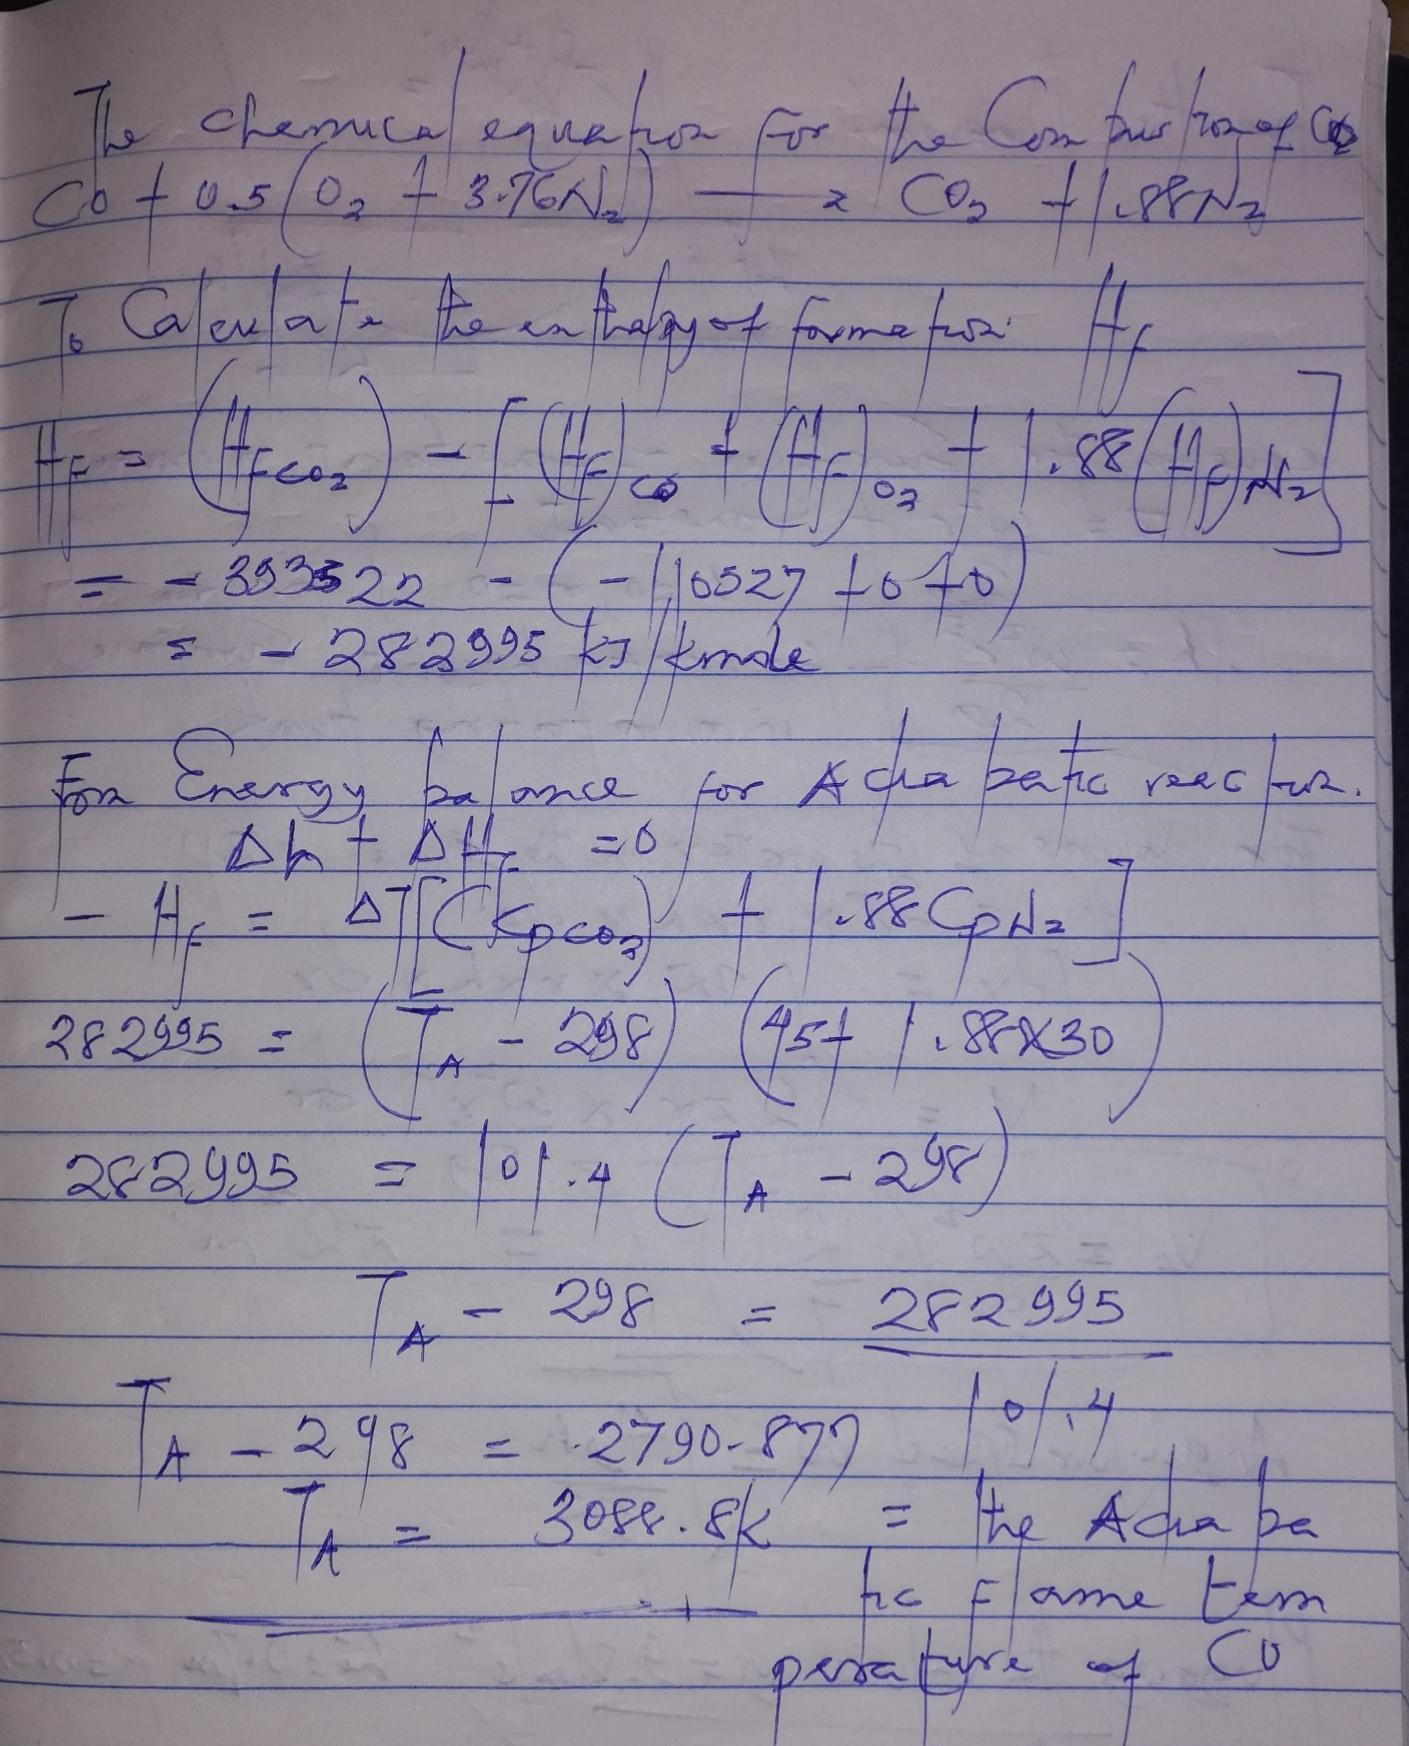 The chemical equation for the Combustion of CO
CO + 0.5(O2 + 3.76N2) → CO2 + 1.88N2
To Calculate the enthalpy of formation Hf
Hf = (HfCO2) - [(Hf)CO + (Hf)O2 + 1.88(Hf)N2]
= - 393522 - (-110527 + 0 + 0)
= - 282995 kJ/kmole
For Energy balance for Adiabatic reaction.
Δh + ΔHf = 0
- Hf = ΔT[(CpCO2) + 1.88CpN2]
282995 = (TA - 298) (45 + 1.88x30)
282995 = 101.4 (TA - 298)
TA - 298 = 282995
101.4
TA - 298 = 2790.877
TA = 3088.8k = the Adiaba
tic Flame tem
perature of CO